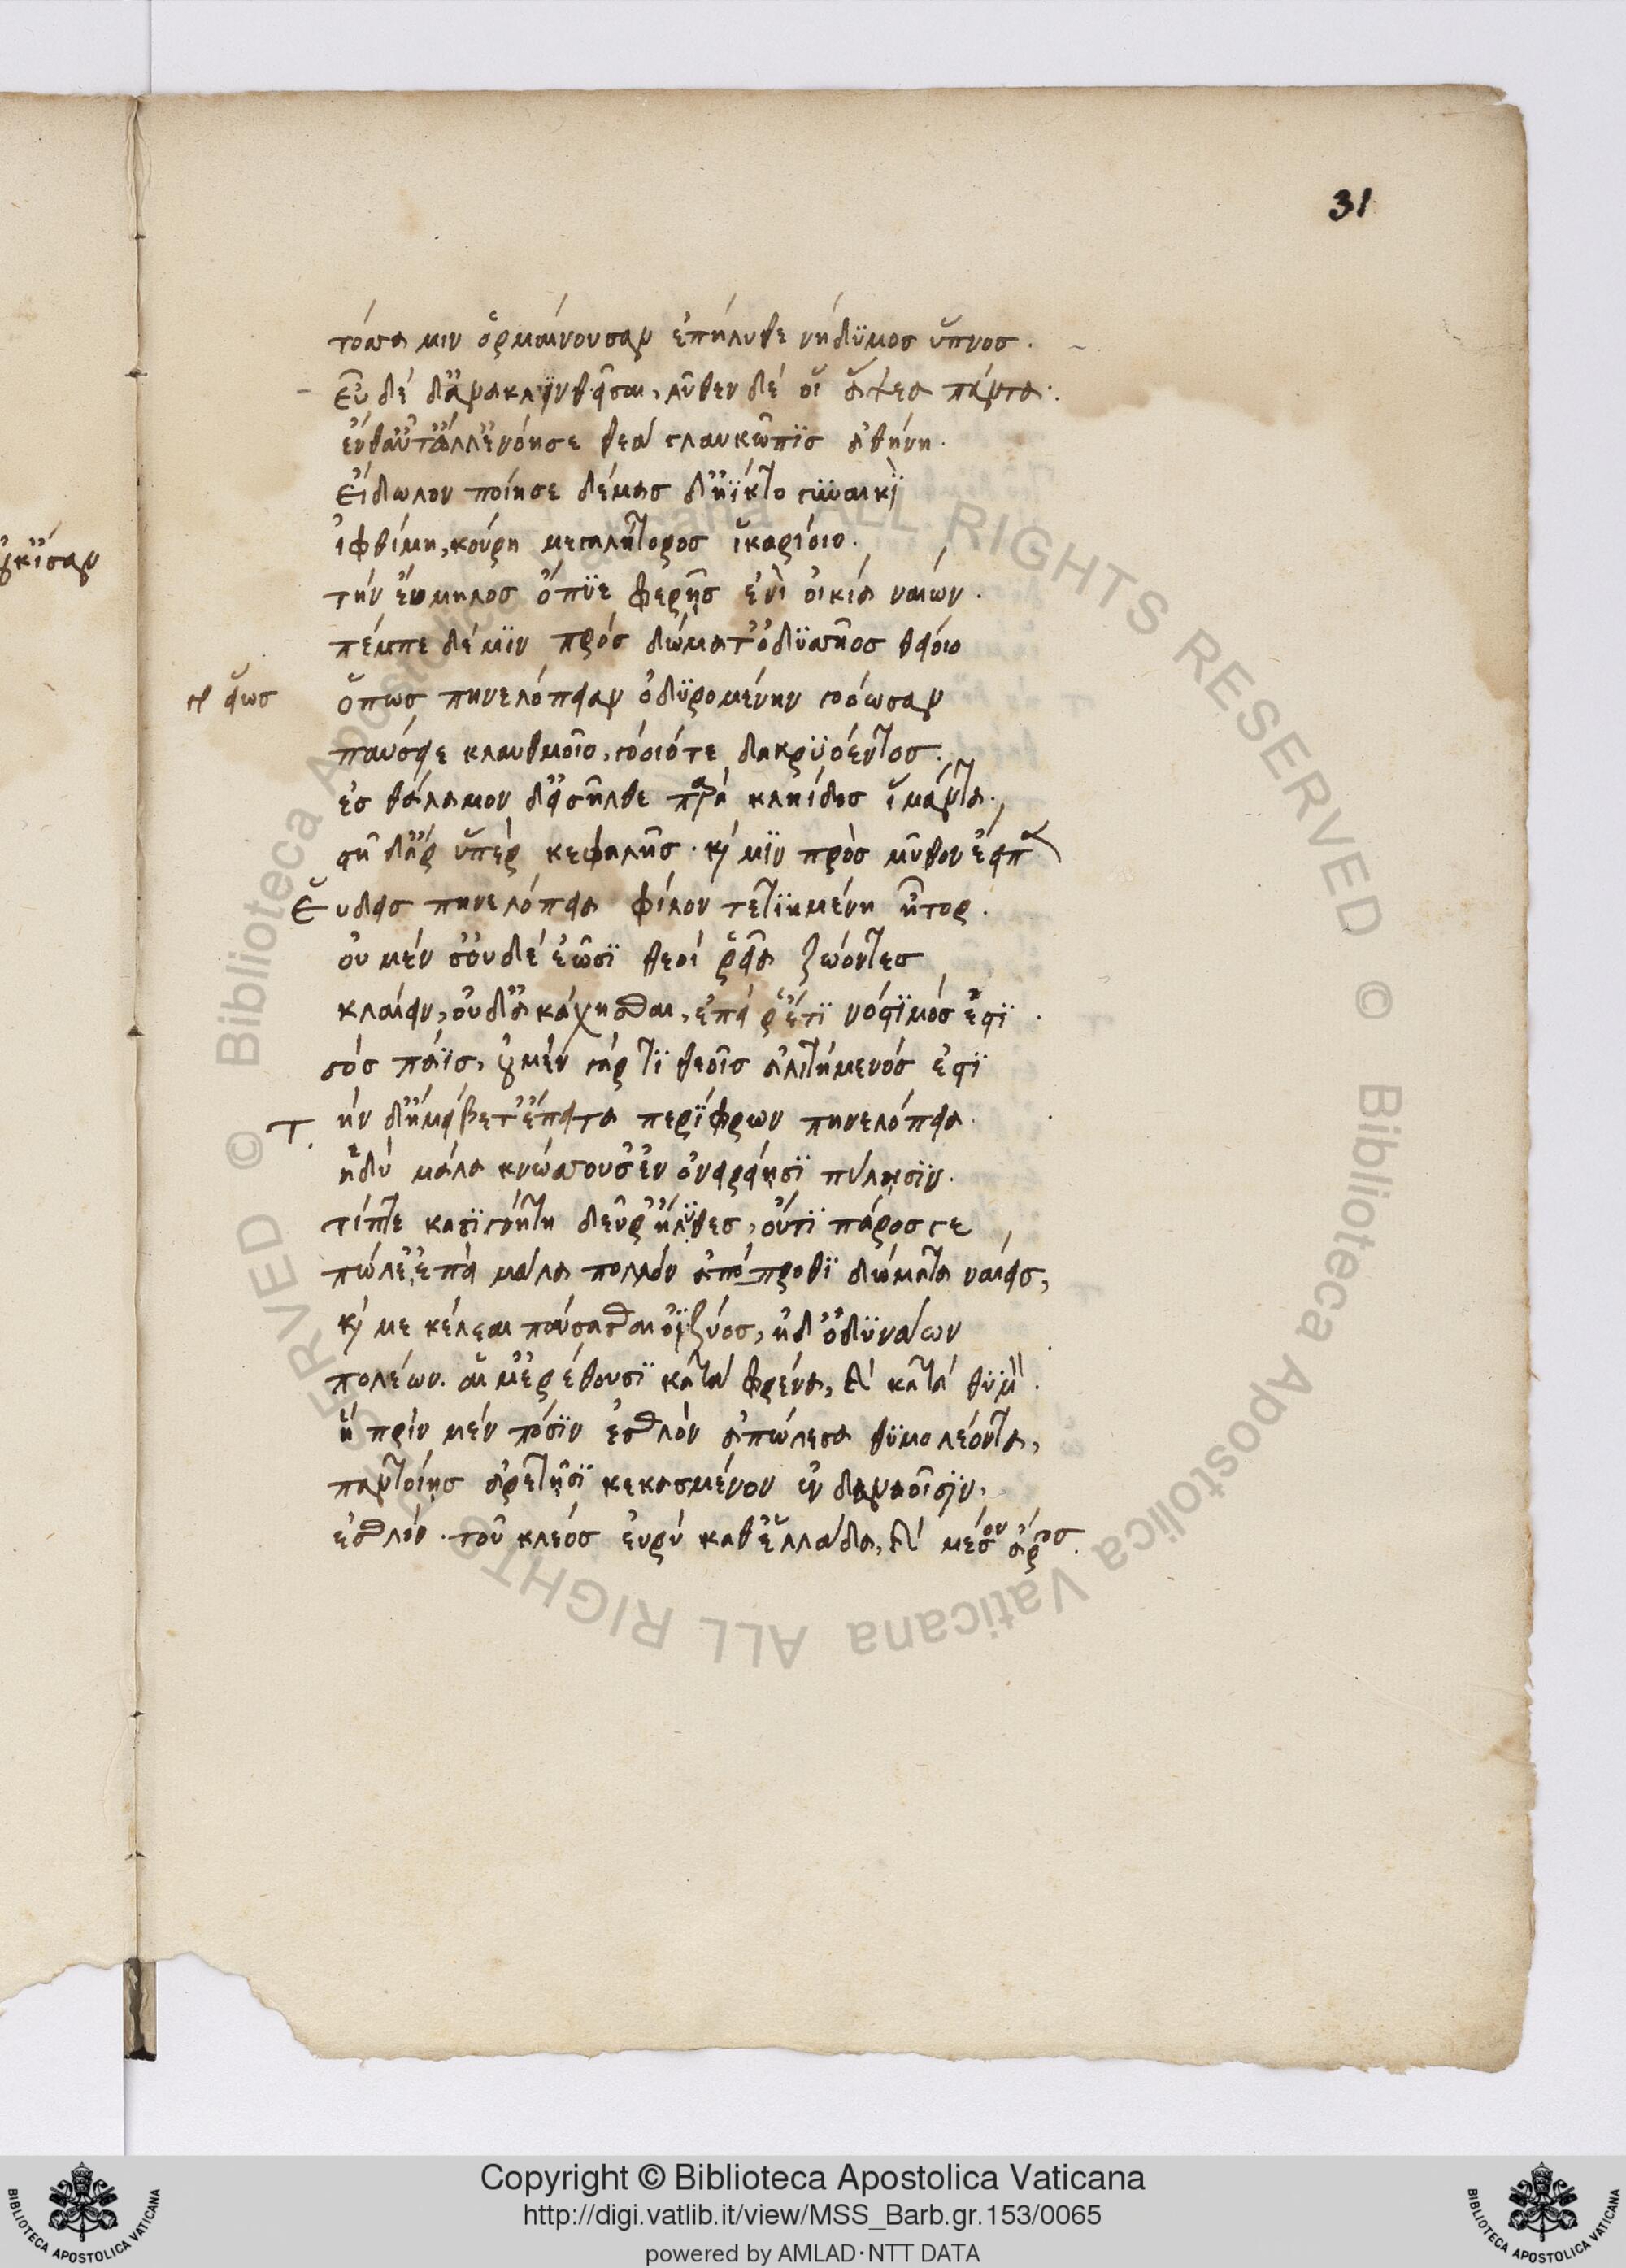 31
τόσσα μιν ὁρμαίνουσαν ἐπήλυθε νήδϋμος ὕπνος.
εὗδε δ' ἀνακλϊνθεῖσαι, λῦθεν δέ οἱ ἅψεα πάντα.
ἔνθ' αὖτ' ἄλλ' ἐνόησε θεὰ γλαυκῶπϊς ἀθήνη.
εἴδωλον ποίησε δέμας δ' ἤϊκτο γϋναικὶ
ἰφθίμη, κούρη μεγαλήτορος ἰκαρίοιο.
τὴν ἔυμηλος ὄπϋε φερῇς ἐνὶ οἰκία ναιών.
πέμπε δέ μϊν πρὸς δώματ' ὀδϋσσῆος θείοιο
γρ εἵως
ὅπως πηνελόπειαν ὀδϋρομένην γοόωσαν
παύσειε κλαυθμοῖο, γόοιό τε δακρϋόεντος.
ἐς θάλαμον δ' εἰσῆλθε παρὰ κληίδος ἱμάντα,
στῆ δ' ἄρ ὑπὲρ κεφαλῆς. καί μϊν πρὸς μῦθον ἔειπε
Εὕδεις πηνελόπεια φίλον τετϊημένη ἦτορ.
οὐ μέν σ' οὐδὲ ἐῶσϊ θεοὶ ῥεῖα ζώοντες
κλαίειν, οὐδ' ἀκάχησθαι, ἐπεί ῥ' ἔτϊ νόστϊμός ἐστϊ.
σὸς πάϊς, οὐ μὲν γάρ τϊ θεοῖς ἀλιτήμενός ἐστϊ
Τὴν δ' ἠμείβετ' ἔπειτα περΐφρων πηνελόπεια.
ἡδὺ μάλα κνώσσουσ' ἐν ὀνειρείησϊ πύλησϊν.
τίπτε κασϊγνήτη δεῦρ' ἤλϋθες, οὔτϊ πάρος γε
πώλε', ἐπεὶ μάλα πολλὸν ἀπόπροθϊ δώματα ναίεις,
καί με κέλεαι παύσασθαι ὀϊζύος, ἠδ' ὀδϋνάων
πολέων. αἵ μ' ἐρέθουσϊ κατὰ φρένα, καὶ κατὰ θϋμὸν.
ἣ πρὶν μὲν πόσϊν ἐσθλὸν ἀπώλεσα θϋμολέοντα,
παντοίης ἀρετῇσϊ κεκασμένον ἐν δαναοῖσϊν,
ἐσθλόν. τοῦ κλέος εὐρὺ καθ' ἑλλάδα, καὶ μέσον ἄργος.
Copyright © Biblioteca Apostolica Vaticana
http://digi.vatlib.it/view/MSS_Barb.gr.153/0065
powered by AMLAD·NTT DATA